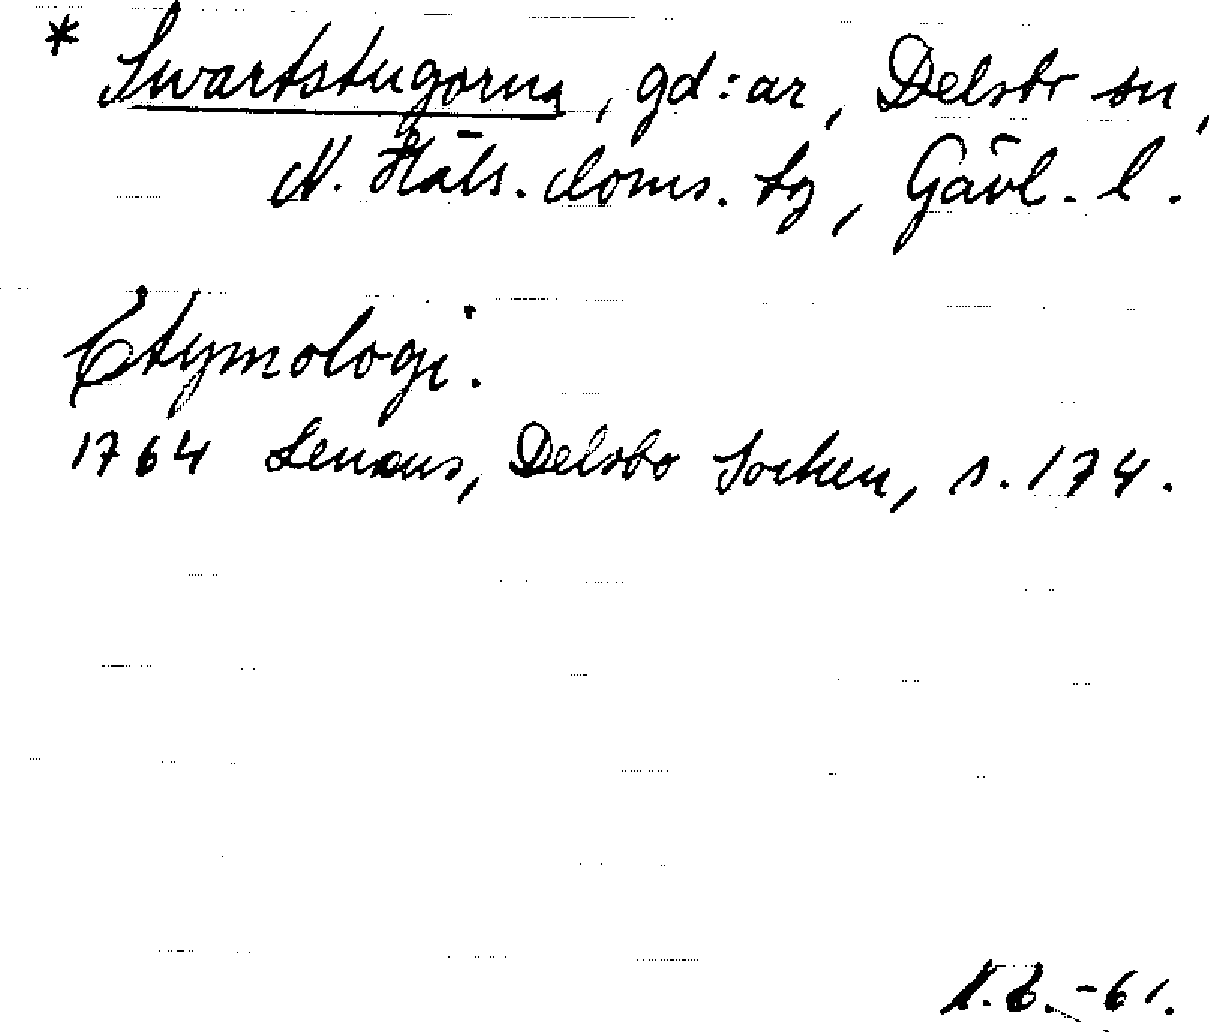 * Swartstugorna, gd:ar, Delsbo sn,
N. Häls. doms. sg, Gävl. l.
Etymologi.
1764 Lenæus, Delsbo Socken, s. 174.
-61.